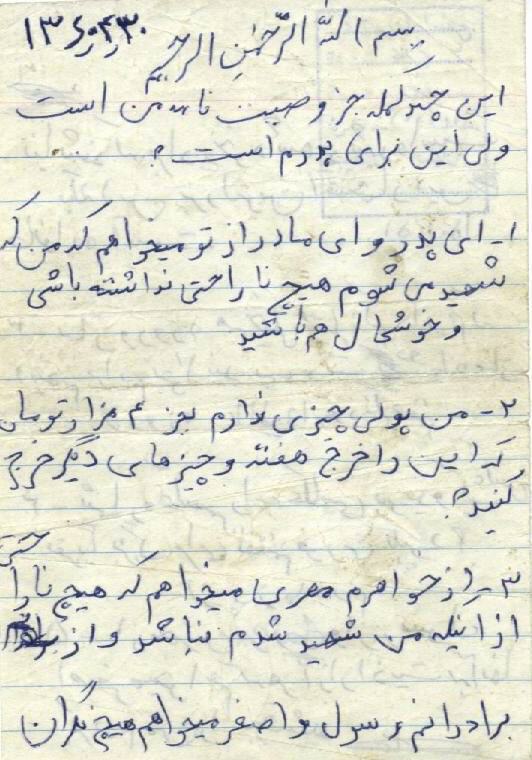 ۱۳۶۰،۴،۳۰
بسم الله الرّحمٰن الرحیم
این چند کلمه جز وصیت نامه من است
ولی این برای پدرم است.
۱- ای پدر و ای مادر از تو میخواهم که من که
شهید می شوم هیچ ناراحتی نداشته باشی
و خوشحال هم باشید
۲- من پولی چیزی ندارم بجز ۴ هزار تومان
که این را خرج هفته و چیزهای دیگر خرج
کنید.
۳- از خواهرم مهری میخواهم که هیچ ناراحتی
از اینکه من شهید شدم نباشد و از
برادرانم رسول و اصغر میخواهم هیچ نگران